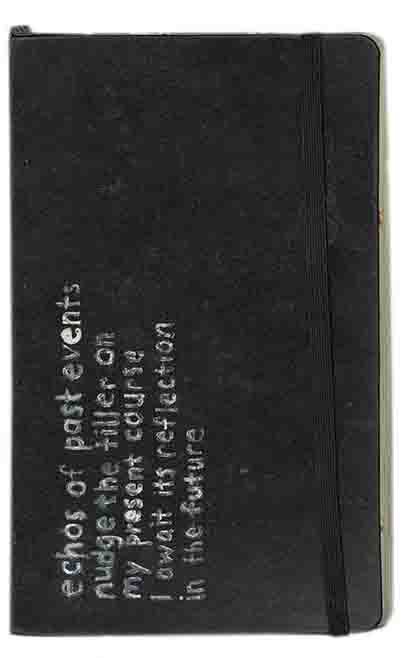 echos of past events
nudge the tiller on
my present course
I await its reflection
in the future